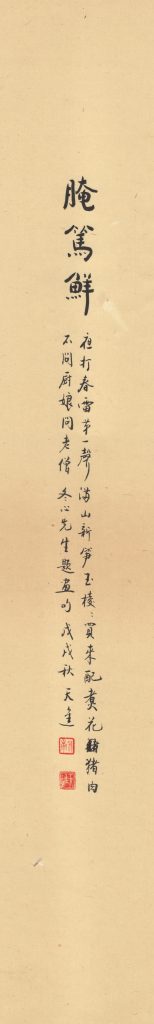 腌篤鮮
夜打春雷苐一聲滿山新笋玉棱〻買來配煮花猪肉
不問厨娘問老僧冬心先生題畫句戊戌秋天